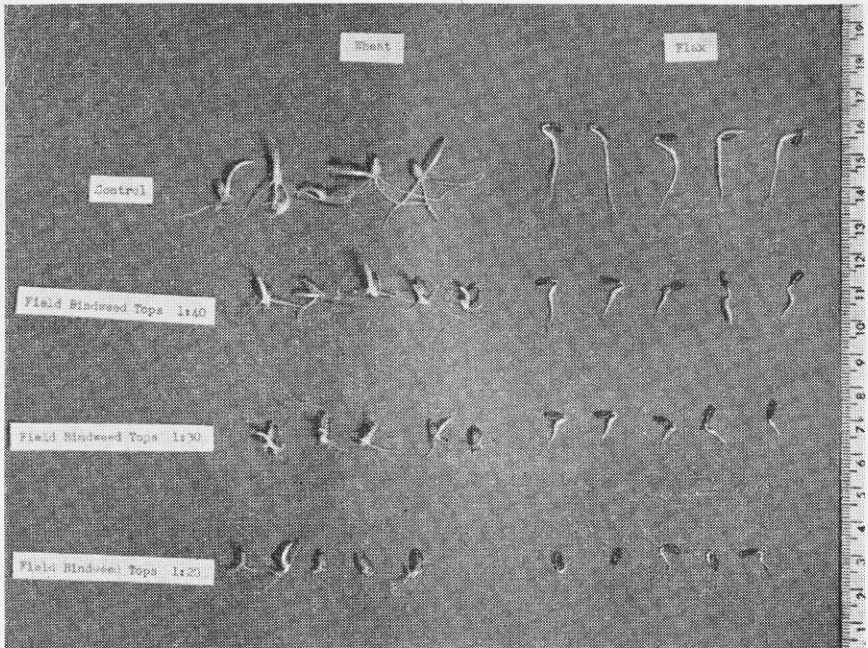 Wheat
Flax
Control
Field Bindweed Tops 1:40
Field Bindweed Tops 1:30
Field Bindweed Tops 1:20
19
18
17
16
15
14
13
12
11
10
9
8
7
6
5
4
3
2
1